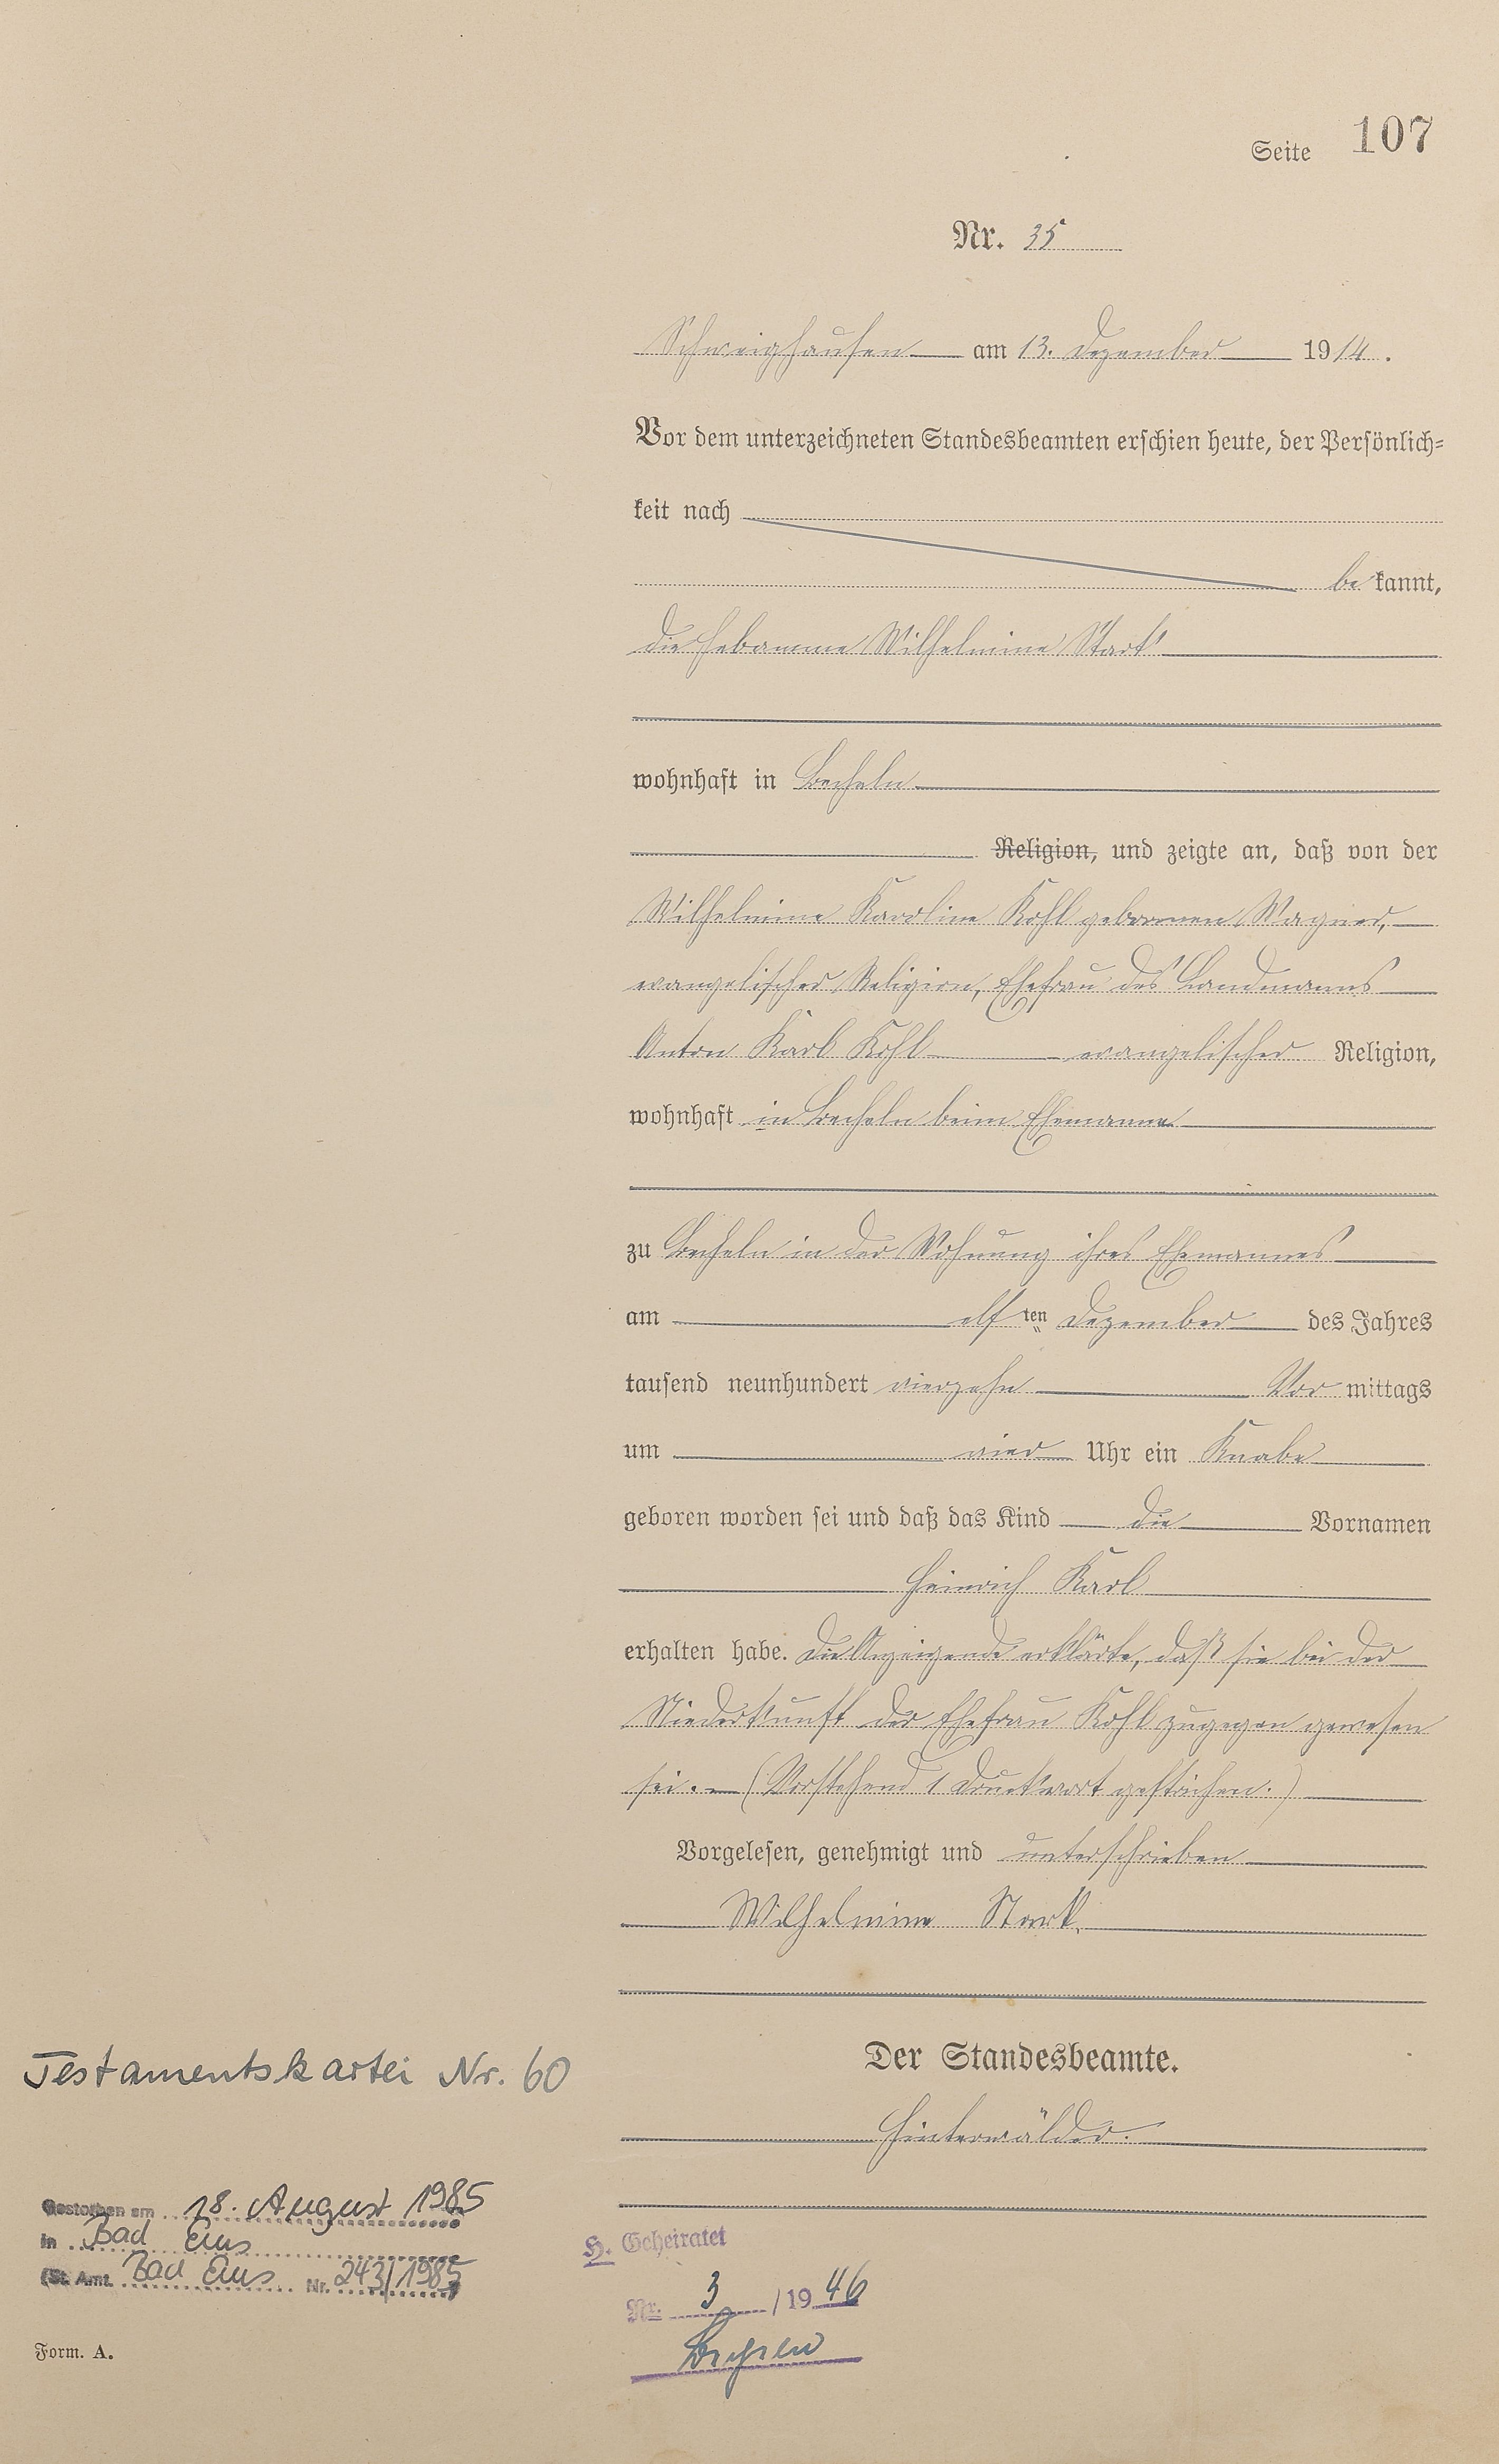 Seite 107
Nr. 35
Schweighausen am 13. Dezember 1914.
Vor dem unterzeichneten Standesbeamten erschien heute, der Persönlich=
keit nach
be kannt,
die Hebamme Wilhelmine Stark
wohnhaft in Becheln
Religion, und zeigte an, daß von der
Wilhelmine Karoline Kohl geborenen Wagner,
evangelischer Religion, Ehefrau des Landmanns
Anton Karl Kohl evangelischer Religion,
wohnhaft in Becheln beim Ehemanne
zu Becheln in der Wohnung ihres Ehemannes
am elf ten Dezember des Jahres
tausend neunhundert vierzehn Vor mittags
um vier Uhr ein Knabe
geboren worden sei und daß das Kind die Vornamen
Heinrich Karl
erhalten habe. Die Anzeigende erklärte, daß sie bei der
Niederkunft der Ehefrau Kohl zugegen gewesen
sei. — (Vorstehend 1 Druckwort gestrichen.)
Vorgelesen, genehmigt und unterschrieben
Wilhelmine Stark.
Der Standesbeamte.
Hinterwälder.
Testamentskartei Nr. 60
Gestorben am 18. August 1985
in Bad Ems
(St. Amt. Bad Ems Nr. 243/1985
H. Geheiratet
Nr. 3 / 19 46
Form. A.